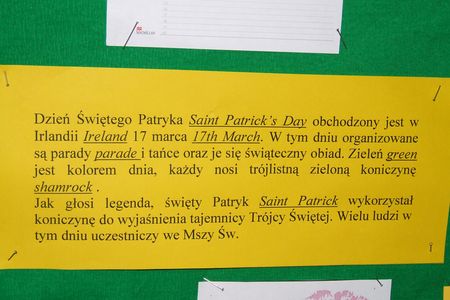 MACMILLAN
Dzień Świętego Patryka Saint Patrick's Day obchodzony jest w
Irlandii Ireland 17 marca 17th March. W tym dniu organizowane
są parady parade i tańce oraz je się świąteczny obiad. Zieleń green
jest kolorem dnia, każdy nosi trójlistną zieloną koniczynę
shamrock .
Jak głosi legenda, święty Patryk Saint Patrick wykorzystał
koniczynę do wyjaśnienia tajemnicy Trójcy Świętej. Wielu ludzi w
tym dniu uczestniczy we Mszy Św.